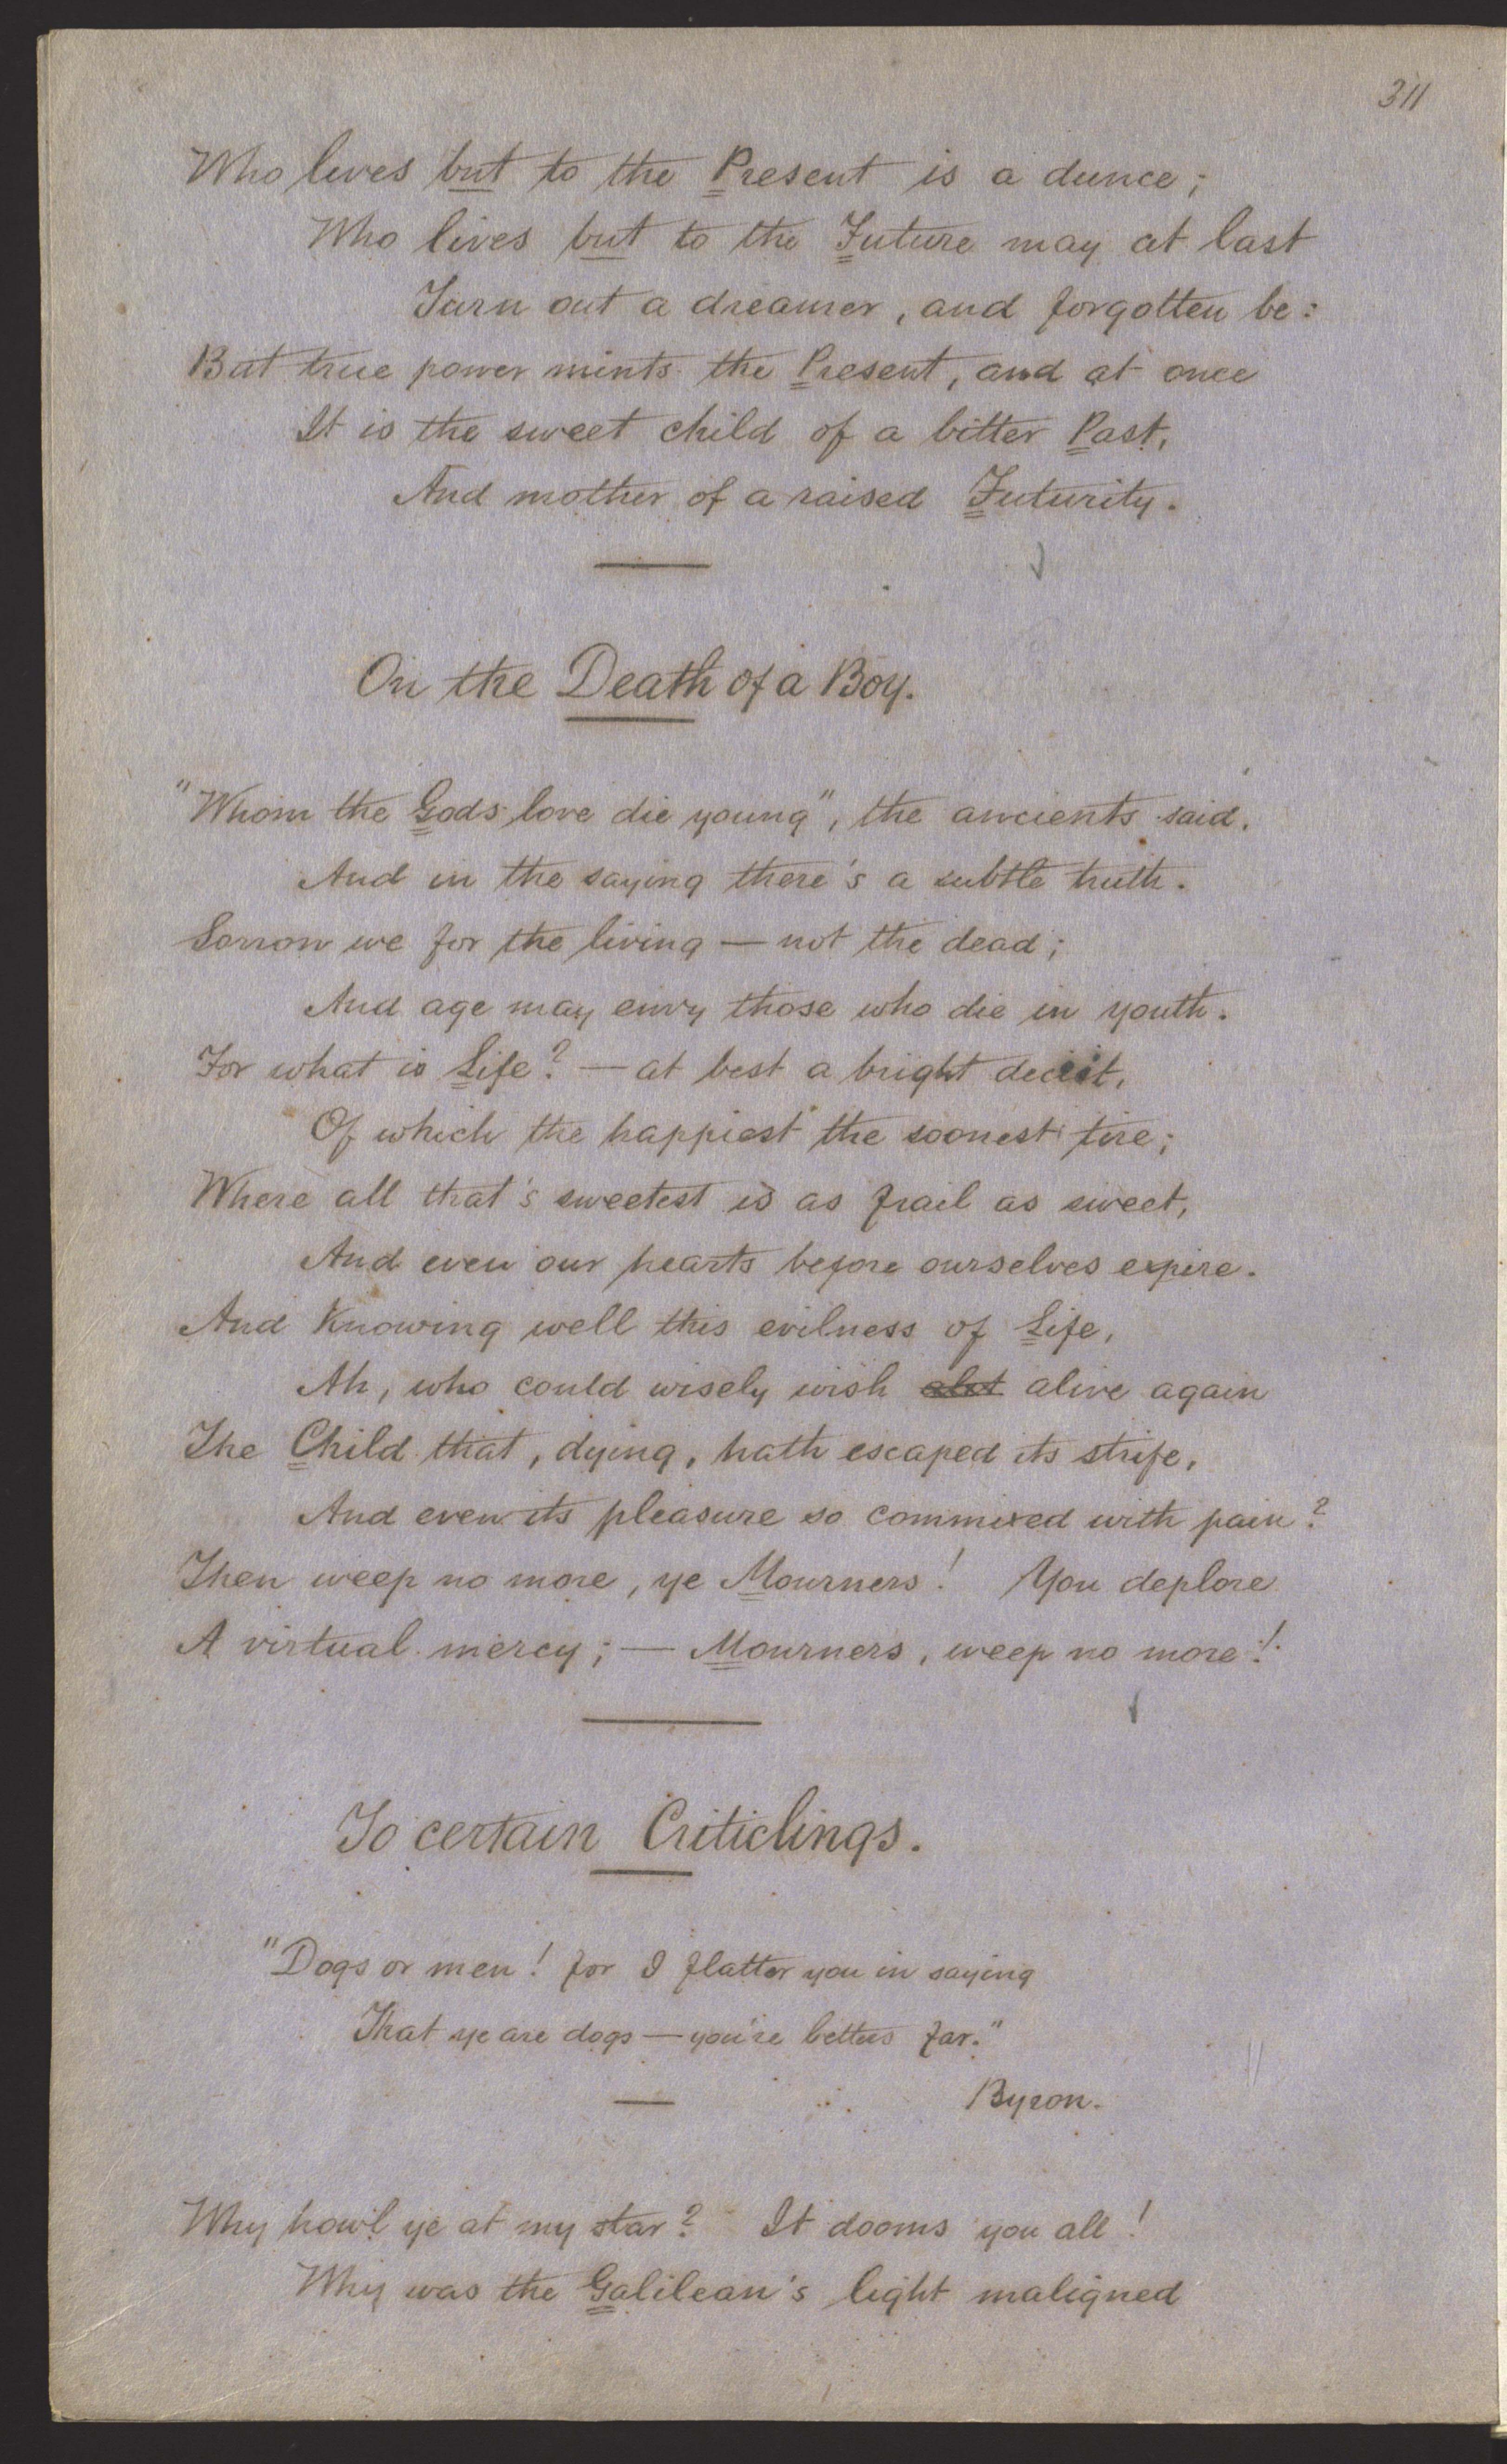 311
Who lives but to the Present is a dunce;
Who lives but to the Future may at last
Turn out a dreamer, and forgotten be:
But true power mints the Present, and at once
It is the sweet child of a bitter Past,
And mother of a raised Futurity.
On the Death of a Boy.
"Whom the Gods love die young", the ancients said,
And in the saying there's a subtle truth.
Sorrow we for the living — not the dead;
And age may envy those who die in youth.
For what is Life? — at best a bright deceit,
Of which the happiest the soonest tire;
Where all that's sweetest is as frail as sweet,
And even our hearts before ourselves expire.
And Knowing well this evilness of Life,
Ah, who could wisely wish alive again
The Child that, dying, hath escaped its strife,
And even its pleasure so commixed with pain?
Then weep no more, ye Mourners! You deplore
A virtual mercy; — Mourners, weep no more!
To certain Criticlings.
"Dogs or men! for I flatter you in saying
That ye are dogs — you're betters far."
Byron.
Why howl ye at my star? It dooms you all!
Why was the Galilean's light maligned